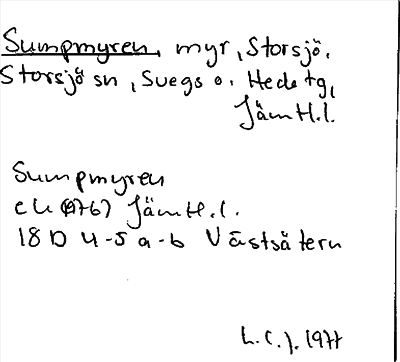 Sumpmyren, myr, Storsjö.
Storsjö sn, Svegs o. Hede tg,
Jämtl.l.
Sumpmyren
ek (1976) Jämtl.l.
18 D 4-5 a-b Västsätern
L.C.J. 1977